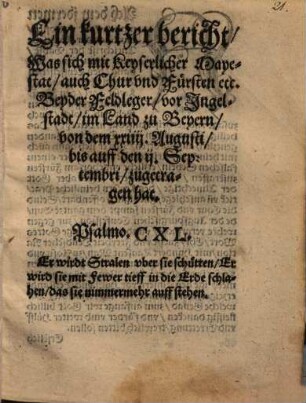 21.
Ein kurtzer bericht/
Was sich mit Keyserlicher Maye-
stat/auch Chur vnd Fürsten ect.
Beyder Feldleger/vor Ingel-
stadt/im Land zu Beyern/
von dem xxiiij. Augusti/
bis auff den ij. Sep-
tembri/zugetra-
gen hat.
Psalmo. CXL.
Er wirdt Stralen vber sie schütten/Er
wird sie mit Fewer tieff in die Erde schla-
hen/das sie nimmermehr auff stehen.